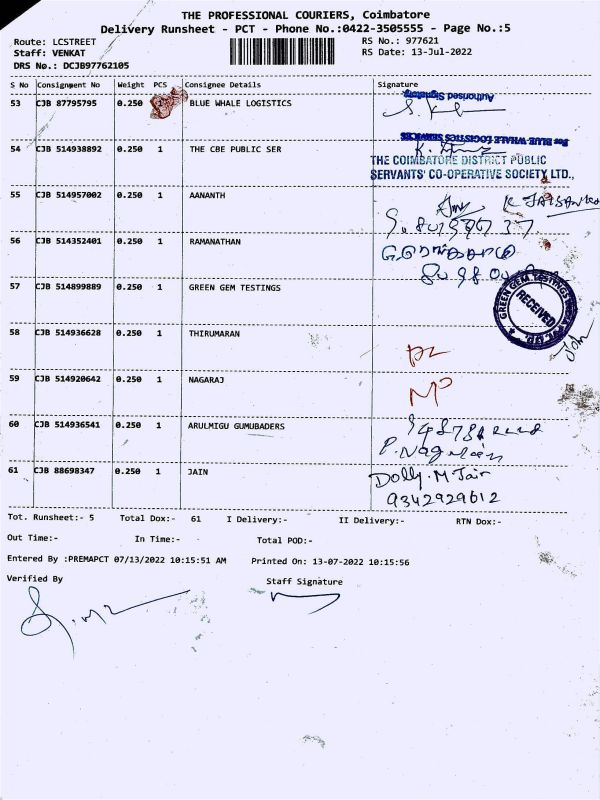 THE PROFESSIONAL COURIERS, Coimbatore
Delivery Runsheet - PCT - Phone No.:0422-3505555 - Page No.:5
Route: LCSTREET
RS No.: 977621
Staff: VENKAT
RS Date: 13-Jul-2022
DRS No.: DCJB97762105
S No Consignment No Weight PCS Consignee Details Signature
Authorised Signatory
53 CJB 87795795 0.250 1 BLUE WHALE LOGISTICS
For BLUE WHALE LOGISTICS SERVICES
54 CJB 514938892 0.250 1 THE CBE PUBLIC SER
THE COIMBATORE DISTRICT PUBLIC
SERVANTS' CO-OPERATIVE SOCIETY LTD.,
55 CJB 514957002 0.250 1 AANANTH
56 CJB 514352401 0.250 1 RAMANATHAN
57 CJB 514899889 0.250 1 GREEN GEM TESTINGS
GREEN GEM TESTINGS
RECEIVED
58 CJB 514936628 0.250 1 THIRUMARAN
59 CJB 514920642 0.250 1 NAGARAJ
60 CJB 514936541 0.250 1 ARULMIGU GUMUBADERS
61 CJB 88698347 0.250 1 JAIN
Dolly.M.Jain
9342929612
Tot. Runsheet:- 5 Total Dox:- 61 I Delivery:- II Delivery:- RTN Dox:-
Out Time:- In Time:- Total POD:-
Entered By :PREMAPCT 07/13/2022 10:15:51 AM Printed On: 13-07-2022 10:15:56
Verified By
Staff Signature